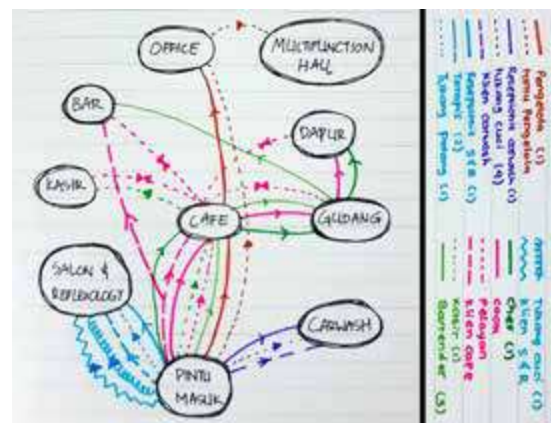 OFFICE
MULTIFUNCTION
HALL
BAR
DAPUR
KASIR
CAFE
GUDANG
SALON &
REFLEXOLOGY
CARWASH
PINTU
MASUK
Pengelola (1)
tamu Pengelola
Resepsionis carwash (1)
tukang cuci (4)
klien carwash
Resepsionis S&R (1)
Terapis (2)
Tukang Potong (1)
Tukang cuci (1)
klien S&R
chef (1)
cook
Pelayan
klien cafe
kasir (1)
Bartender (3)